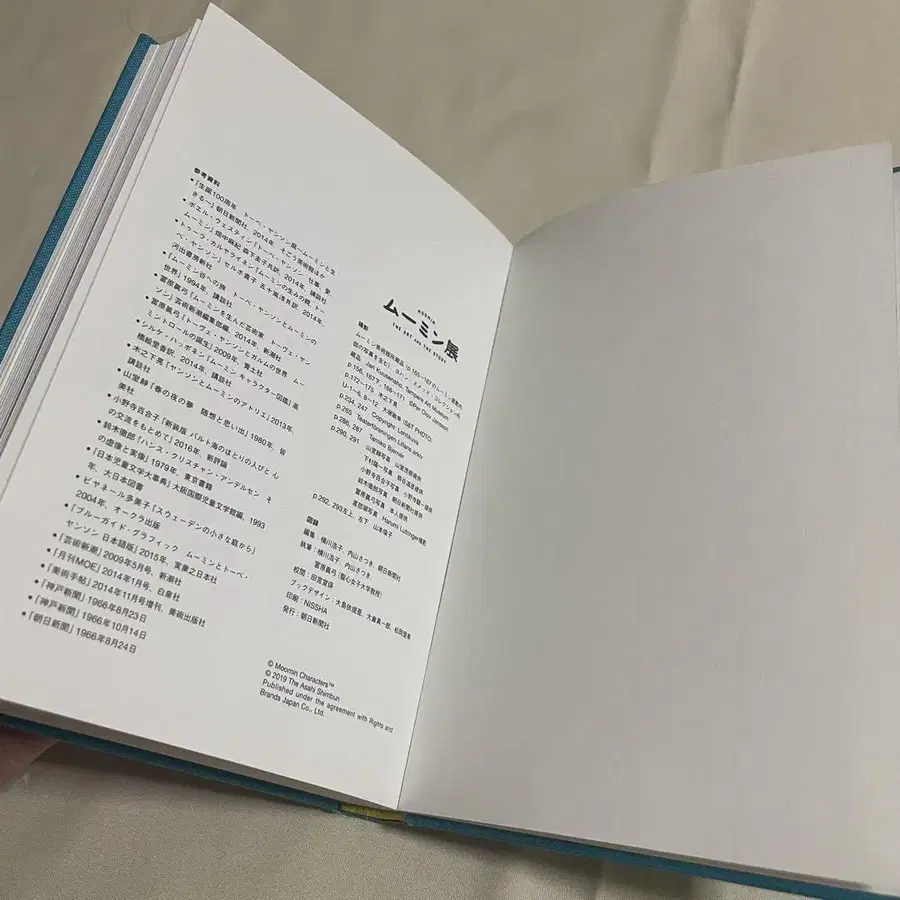 参考資料
•『生誕100周年 トーベ・ヤンソン展～ムーミンと生
きる～』朝日新聞社、2014年、そごう美術館ほか
•ボエル・ヴェスティン『トーベ・ヤンソン 仕事、愛、
ムーミン』畑中麻紀 森下圭子共訳、2014年、講談社
•トゥーラ・カルヤライネン『ムーミンの生みの親、トー
ベ・ヤンソン』セルボ貴子 五十嵐淳共訳、2014年、
河出書房新社
•『ムーミン谷への旅 トーベ・ヤンソンとムーミンの
世界』1994年、講談社
•冨原眞弓『ムーミンを生んだ芸術家 トーヴェ・ヤン
ソン』芸術新潮編集部編、2014年、新潮社
•冨原眞弓『トーヴェ・ヤンソンとガルムの世界 ムー
ミントロールの誕生』2009年、青土社
•シルケ・ハッポネン『ムーミン キャラクター図鑑』高
橋絵里香訳、2014年、講談社
•木之下晃『ヤンソンとムーミンのアトリエ』2013年、
講談社
•山室静『春の夜の夢 随想と思い出』1980年、皆
美社
•小野寺百合子『新装版 バルト海のほとりの人びと 心
の交流をもとめて』2016年、新評論
•鈴木徹郎『ハンス・クリスチャン・アンデルセン そ
の虚像と実像』1979年、東京書籍
•『日本児童文学大事典』大阪国際児童文学館編、1993
年、大日本図書
•ビヤネール多美子『スウェーデンの小さな庭から』
2004年、オークラ出版
•『ブルーガイド・グラフィック ムーミンとトーベ・
ヤンソン 日本語版』2015年、実業之日本社
•『芸術新潮』2009年5月号、新潮社
•『月刊MOE』2014年1月号、白泉社
•『美術手帖』2014年11月号増刊、美術出版社
•『神戸新聞』1966年8月23日
•『神戸新聞』1966年10月14日
•『朝日新聞』1966年8月24日
MOOMIN
ムーミン展
THE ART AND THE STORY
撮影
Jari Kuusenaho, Tampere Art Museum
p.156, 167下, 168–171 ©Per Olov Jansson
p.172–175 木之下晃
U-1–6, 8–12 大塚敏幸（SAT PHOTO）
p.234, 247 Copyright: Lehtikuva
p.265 Teaterföreningen Lillans arkiv
p.286, 287 Tamiko Bjernér
p.290, 291 山室静写真
小野寺百合子写真
鈴木徹郎写真 朝日新聞社提供
冨原眞弓写真 本人提供
p.292, 293左上、右下 山本倫子
図録
編集：横川浩子、内山さつき、朝日新聞社
執筆：横川浩子、内山さつき、
冨原眞弓（聖心女子大学教授）
校閲：田宮宣保
ブックデザイン：大島依提亜、大倉真一郎、松岡里美
印刷：NISSHA
発行：朝日新聞社
© Moomin Characters™
© 2019 The Asahi Shimbun
Published under the agreement with Rights and
Brands Japan Co., Ltd.